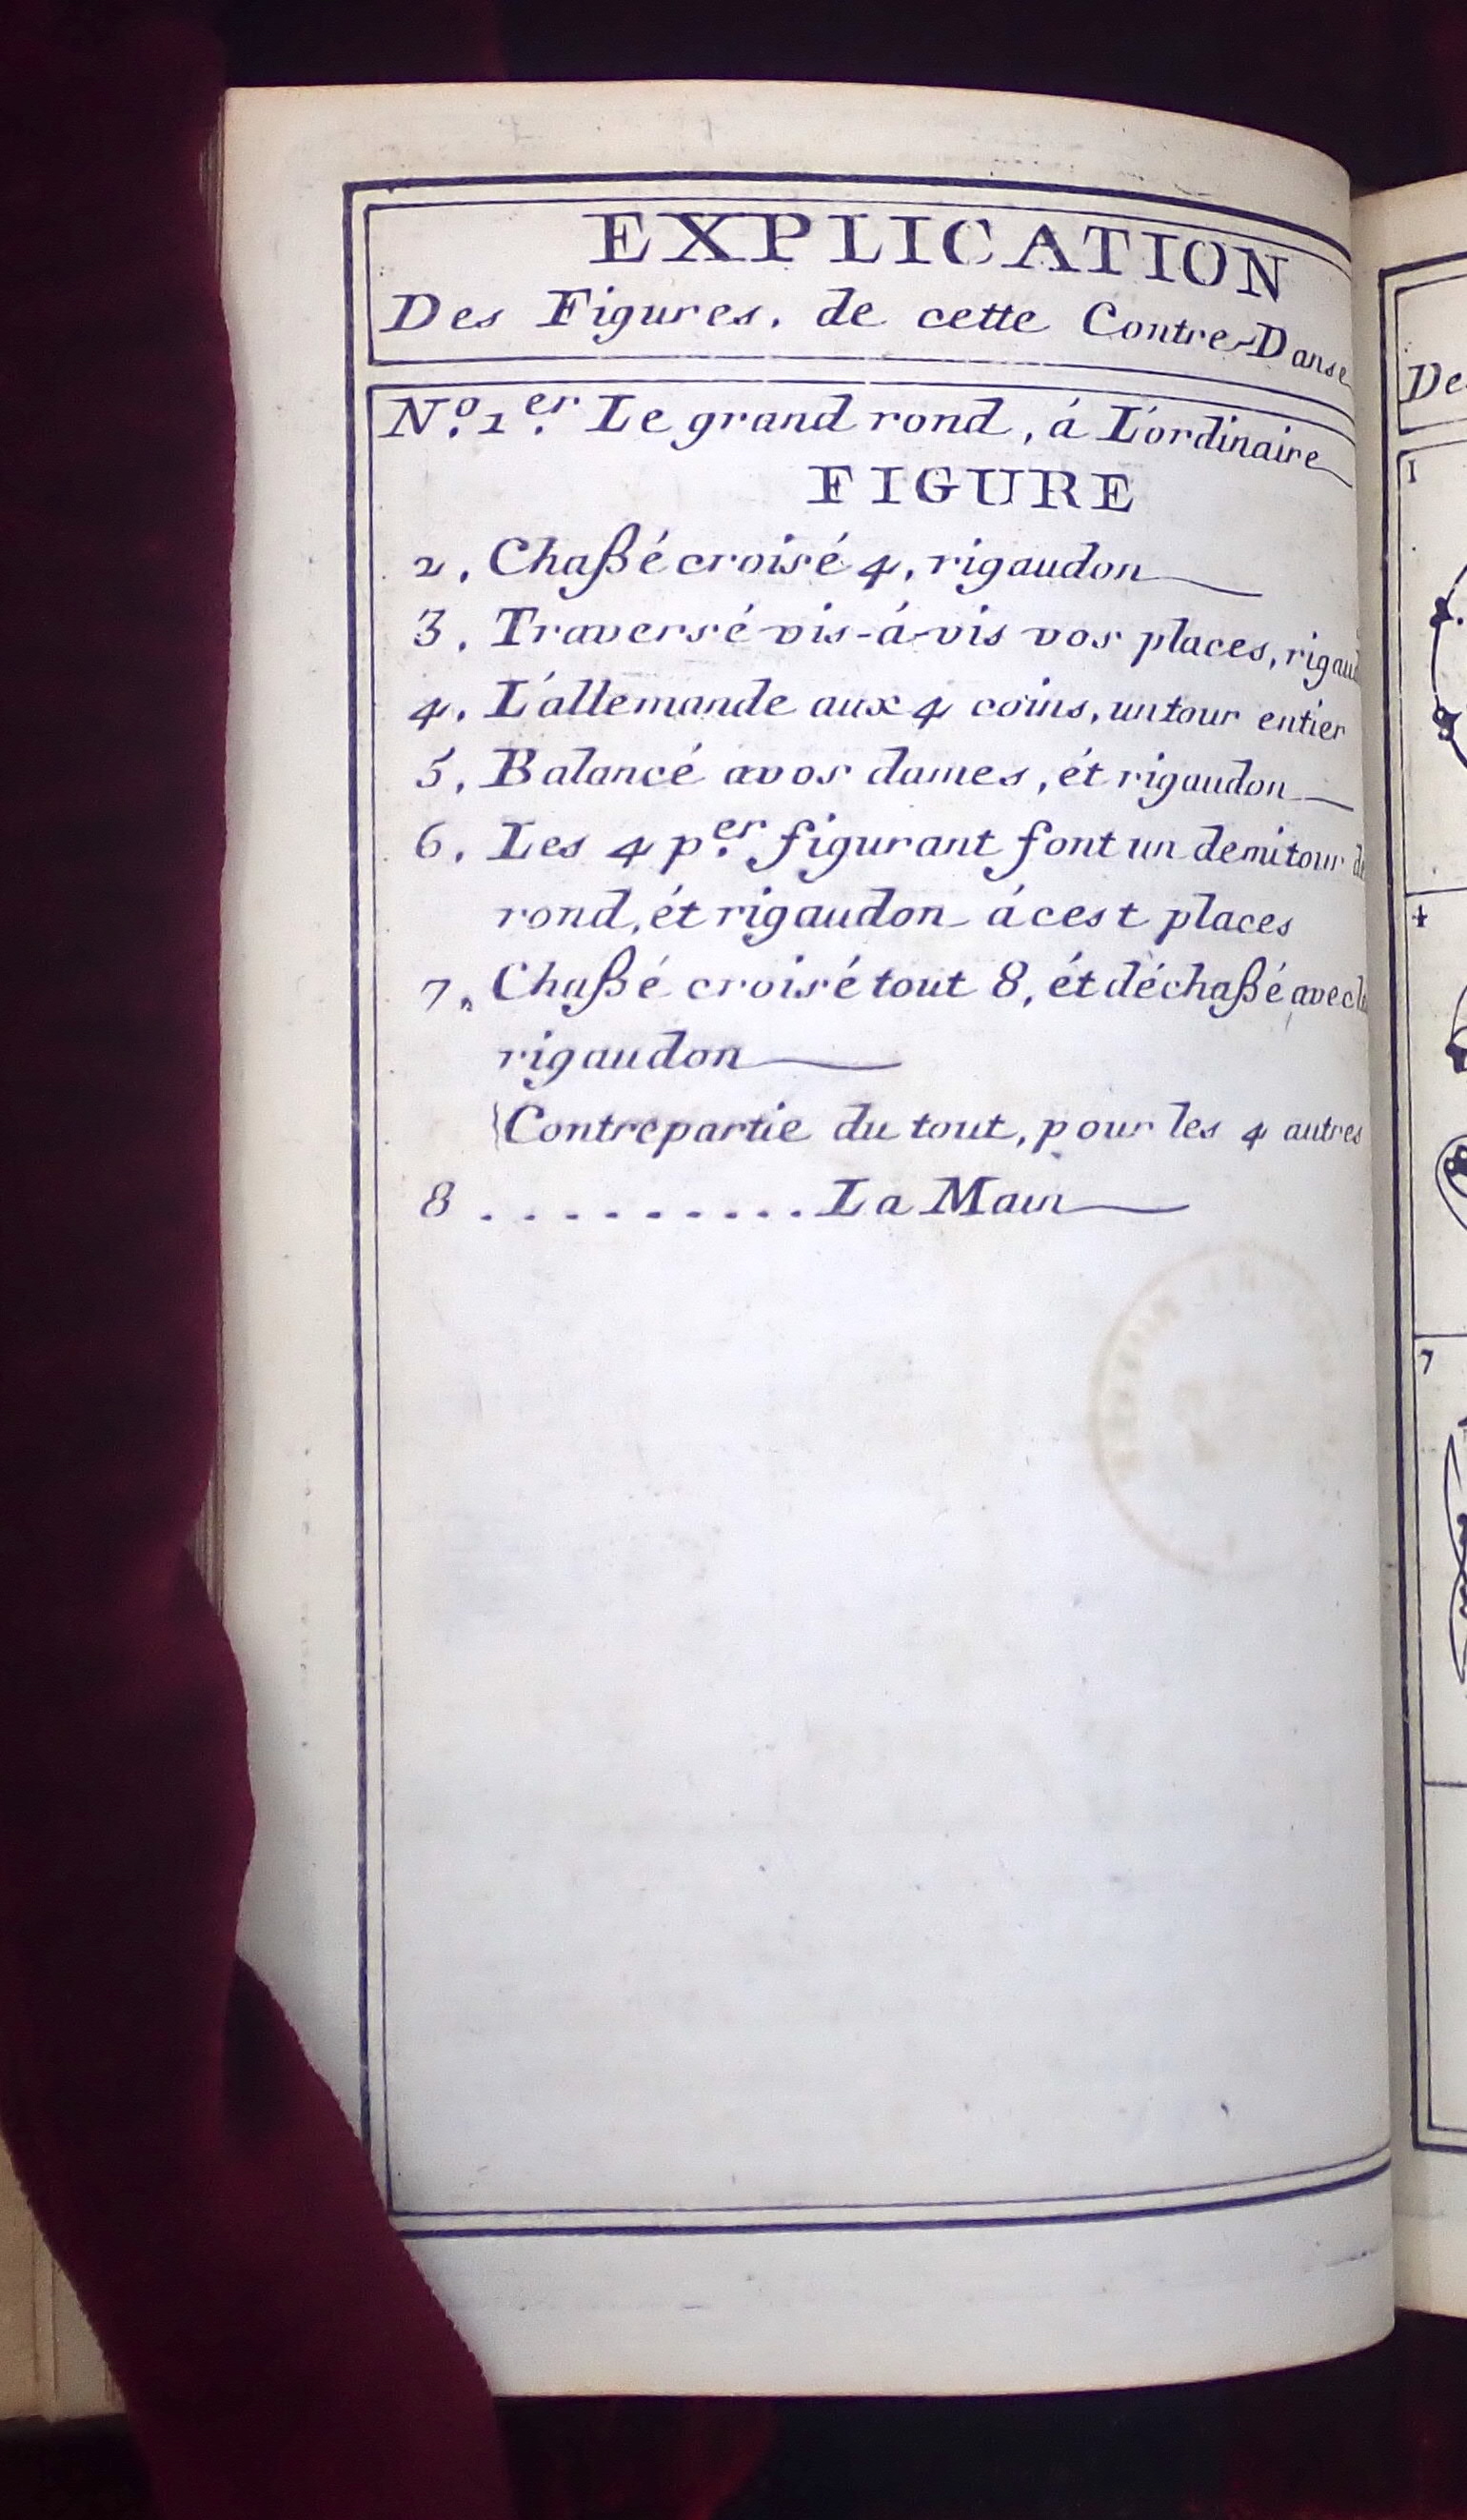 EXPLICATION
Des Figures, de cette Contre-Danse
N.º 1.er Le grand rond, á L'ordinaire
FIGURE
2, Chaßé croisé 4, rigaudon
3, Traversé vis-á-vis vos places, rigau
4, L'allemande aux 4 coins, un tour entier
5, Balancé a vos dames, ét rigaudon
6, Les 4 p.er figurant font un demi tour de
rond, ét rigaudon á cest places
7, Chaßé croisé tout 8, ét déchaßé avec le
rigaudon
Contrepartie du tout, pour les 4 autres
8 .......... La Main
De
1
4
7